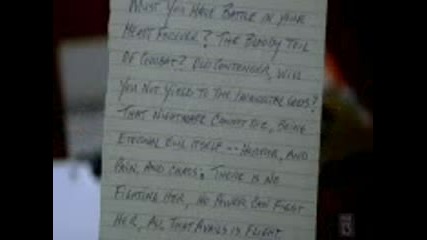 MUST YOU HAVE BATTLE IN YOUR
HEART FOREVER? THE BLOODY TOIL
OF COMBAT? OLD CONTENDER, WILL
YOU NOT YIELD TO THE IMMORTAL GODS?
THAT NIGHTMARE CANNOT DIE, BEING
ETERNAL EVIL ITSELF -- HORROR, AND
PAIN, AND CHAOS; THERE IS NO
FIGHTING HER, NO POWER CAN FIGHT
HER, ALL THAT AVAILS IS FLIGHT